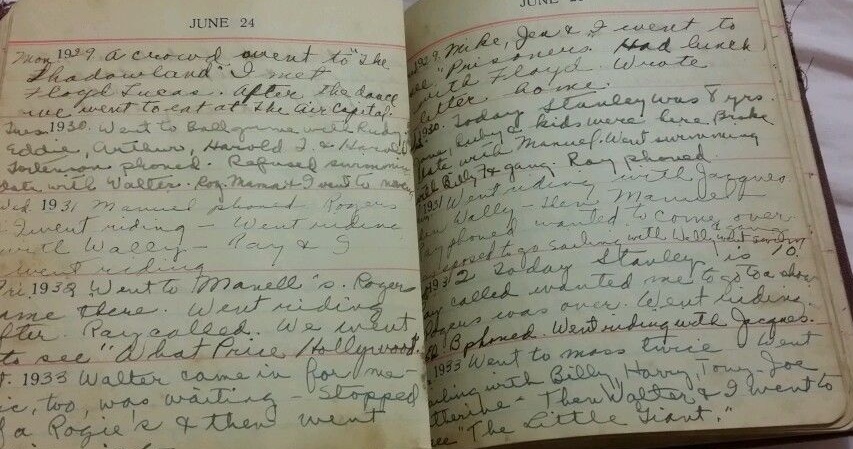 JUNE 24
Mon. 1929. A crowd went to "The
Shadowland" I met
Floyd Lucas. After the dance
we went to eat at The Air Capital.
Tues. 1930. Went to Ball game with Rudy,
Eddie, Arthur, Harold T. & Harold
phoned. Refused swimming
date with Walter. Roy, Mama & I went to
Wed. 1931 Manuel phoned Rogers
& I went riding - Went riding
with Wally - Ray & I
went riding
Fri. 1932 Went to Manell's. Rogers
came there. Went riding
after. Ray called. We went
to see "What Price Hollywood."
1933 Walter came in for me -
too, was waiting - Stopped
& then went
JUNE
29. Mike, Jea & I went to
see "Prisoners. Had lunch
with Floyd. Wrote
letter home.
1930. Today Stanley was 8 yrs.
Ruby & kids were here. Broke
date with Manuel. Went swimming
with Billy F & gang. Ray phoned.
1931 Went riding with Jacques.
Wally - Manuell
Ray phoned wanted to come over
supposed to go sailing with Wally
1932 Today Stanley is 10.
Ray called wanted me to go to a show
Rogers was over. Went riding.
B phoned. Went riding with Jacques.
1933 Went to mass twice Went
with Billy, Harry, Tony - Joe
Then Walter & I went to
see "The Little Giant."